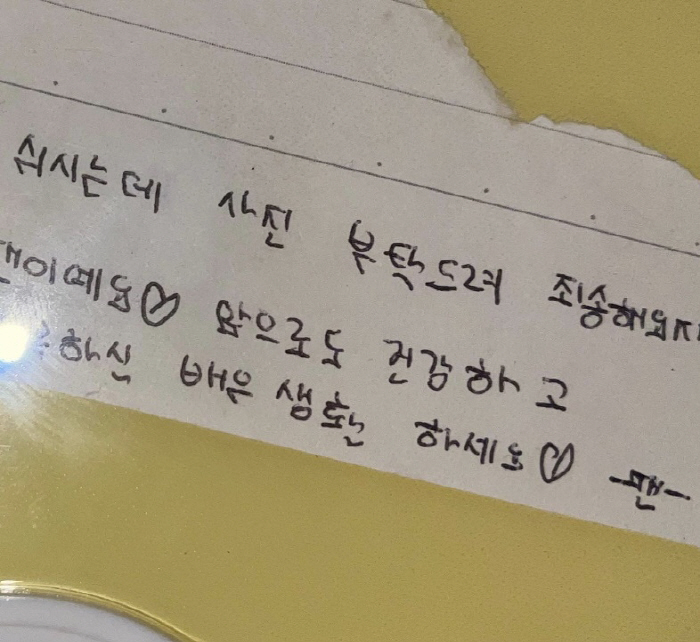 쉬시는데 사진 부탁드려 죄송해요
이예요♡ 앞으로도 건강하고
하신 배우 생활 하세요♡ -팬-